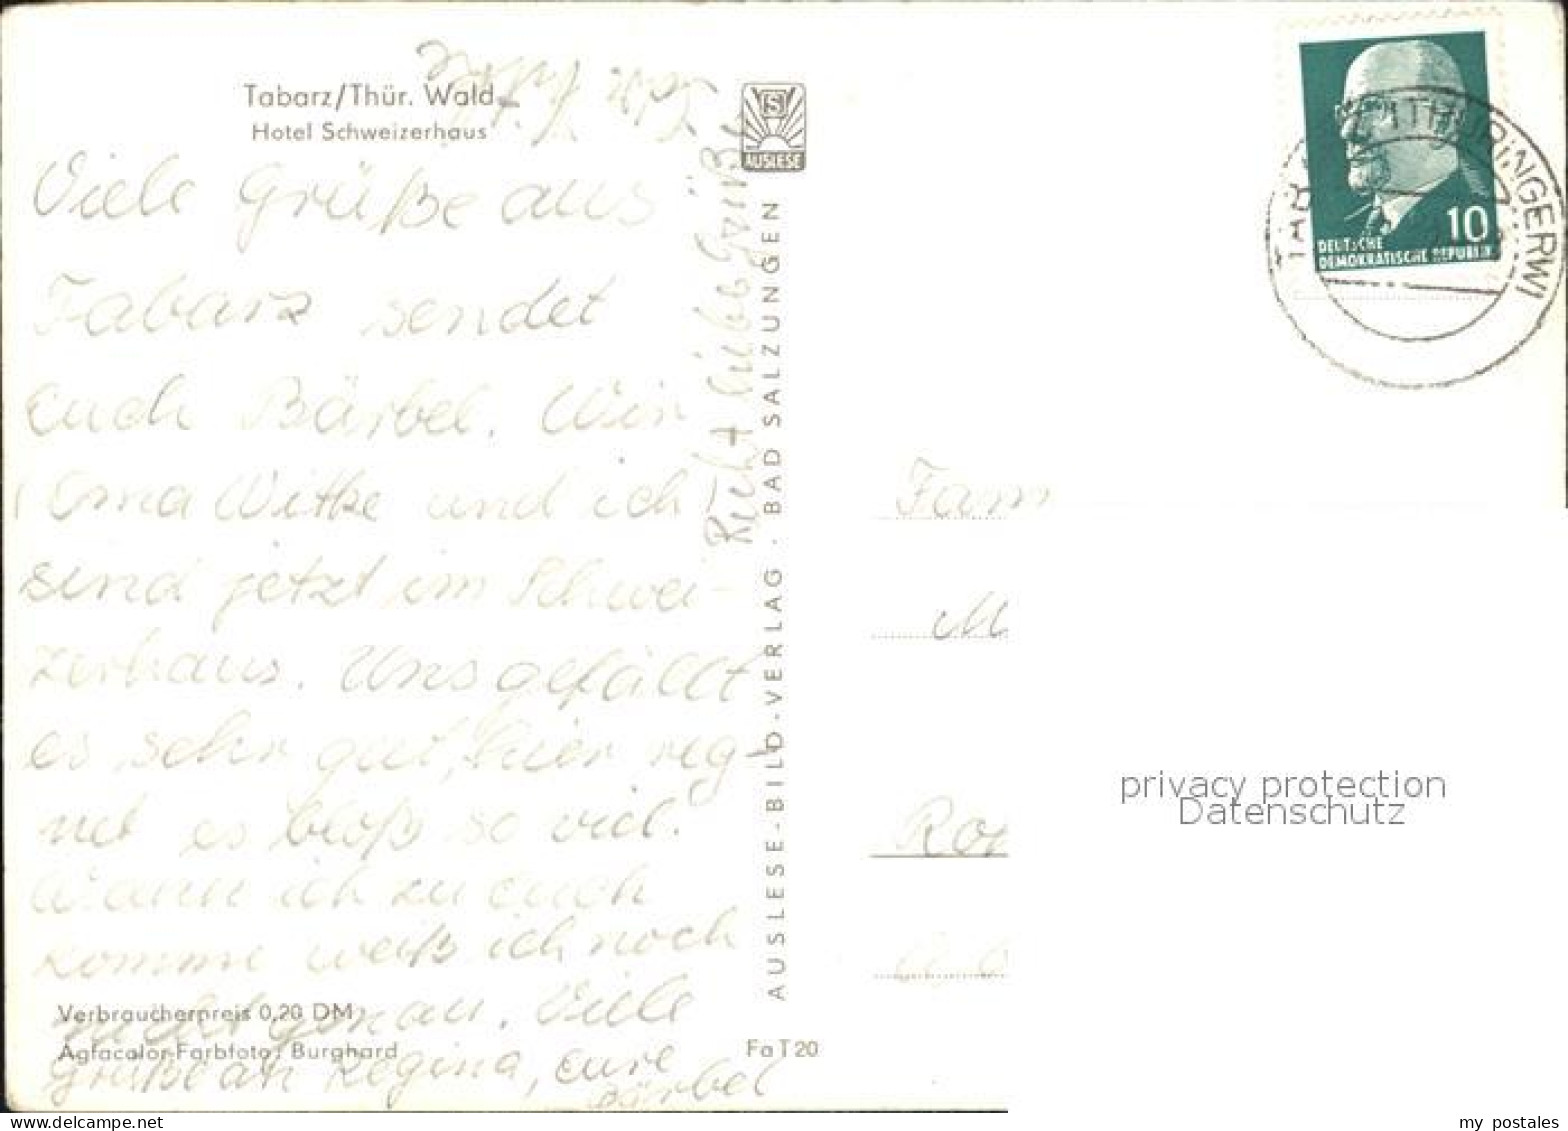 Tabarz/Thür. Wald
Hotel Schweizerhaus
Viele Grüße aus
Tabarz sendet
Euch Bärbel. Wir
(Oma Witke und ich)
sind jetzt im Schwei-
zerhaus. Uns gefällt
es sehr gut, hier reg-
net es bloß so viel.
Wann ich zu euch
komme weiß ich noch
nicht genau. Viele
Grüße an Regina, eure
Bärbel
Verbraucherpreis 0,20 DM
Agfacolor-Farbfoto: Burghard
Recht liebe Grüße
AUSLESE
AUSLESE-BILD-VERLAG · BAD SALZUNGEN
Fa T 20
10
DEUTSCHE
DEMOKRATISCHE REPUBLIK
THÜRINGERWI
Fam
M
Ro
privacy protection
Datenschutz
www.delcampe.net
my_postales